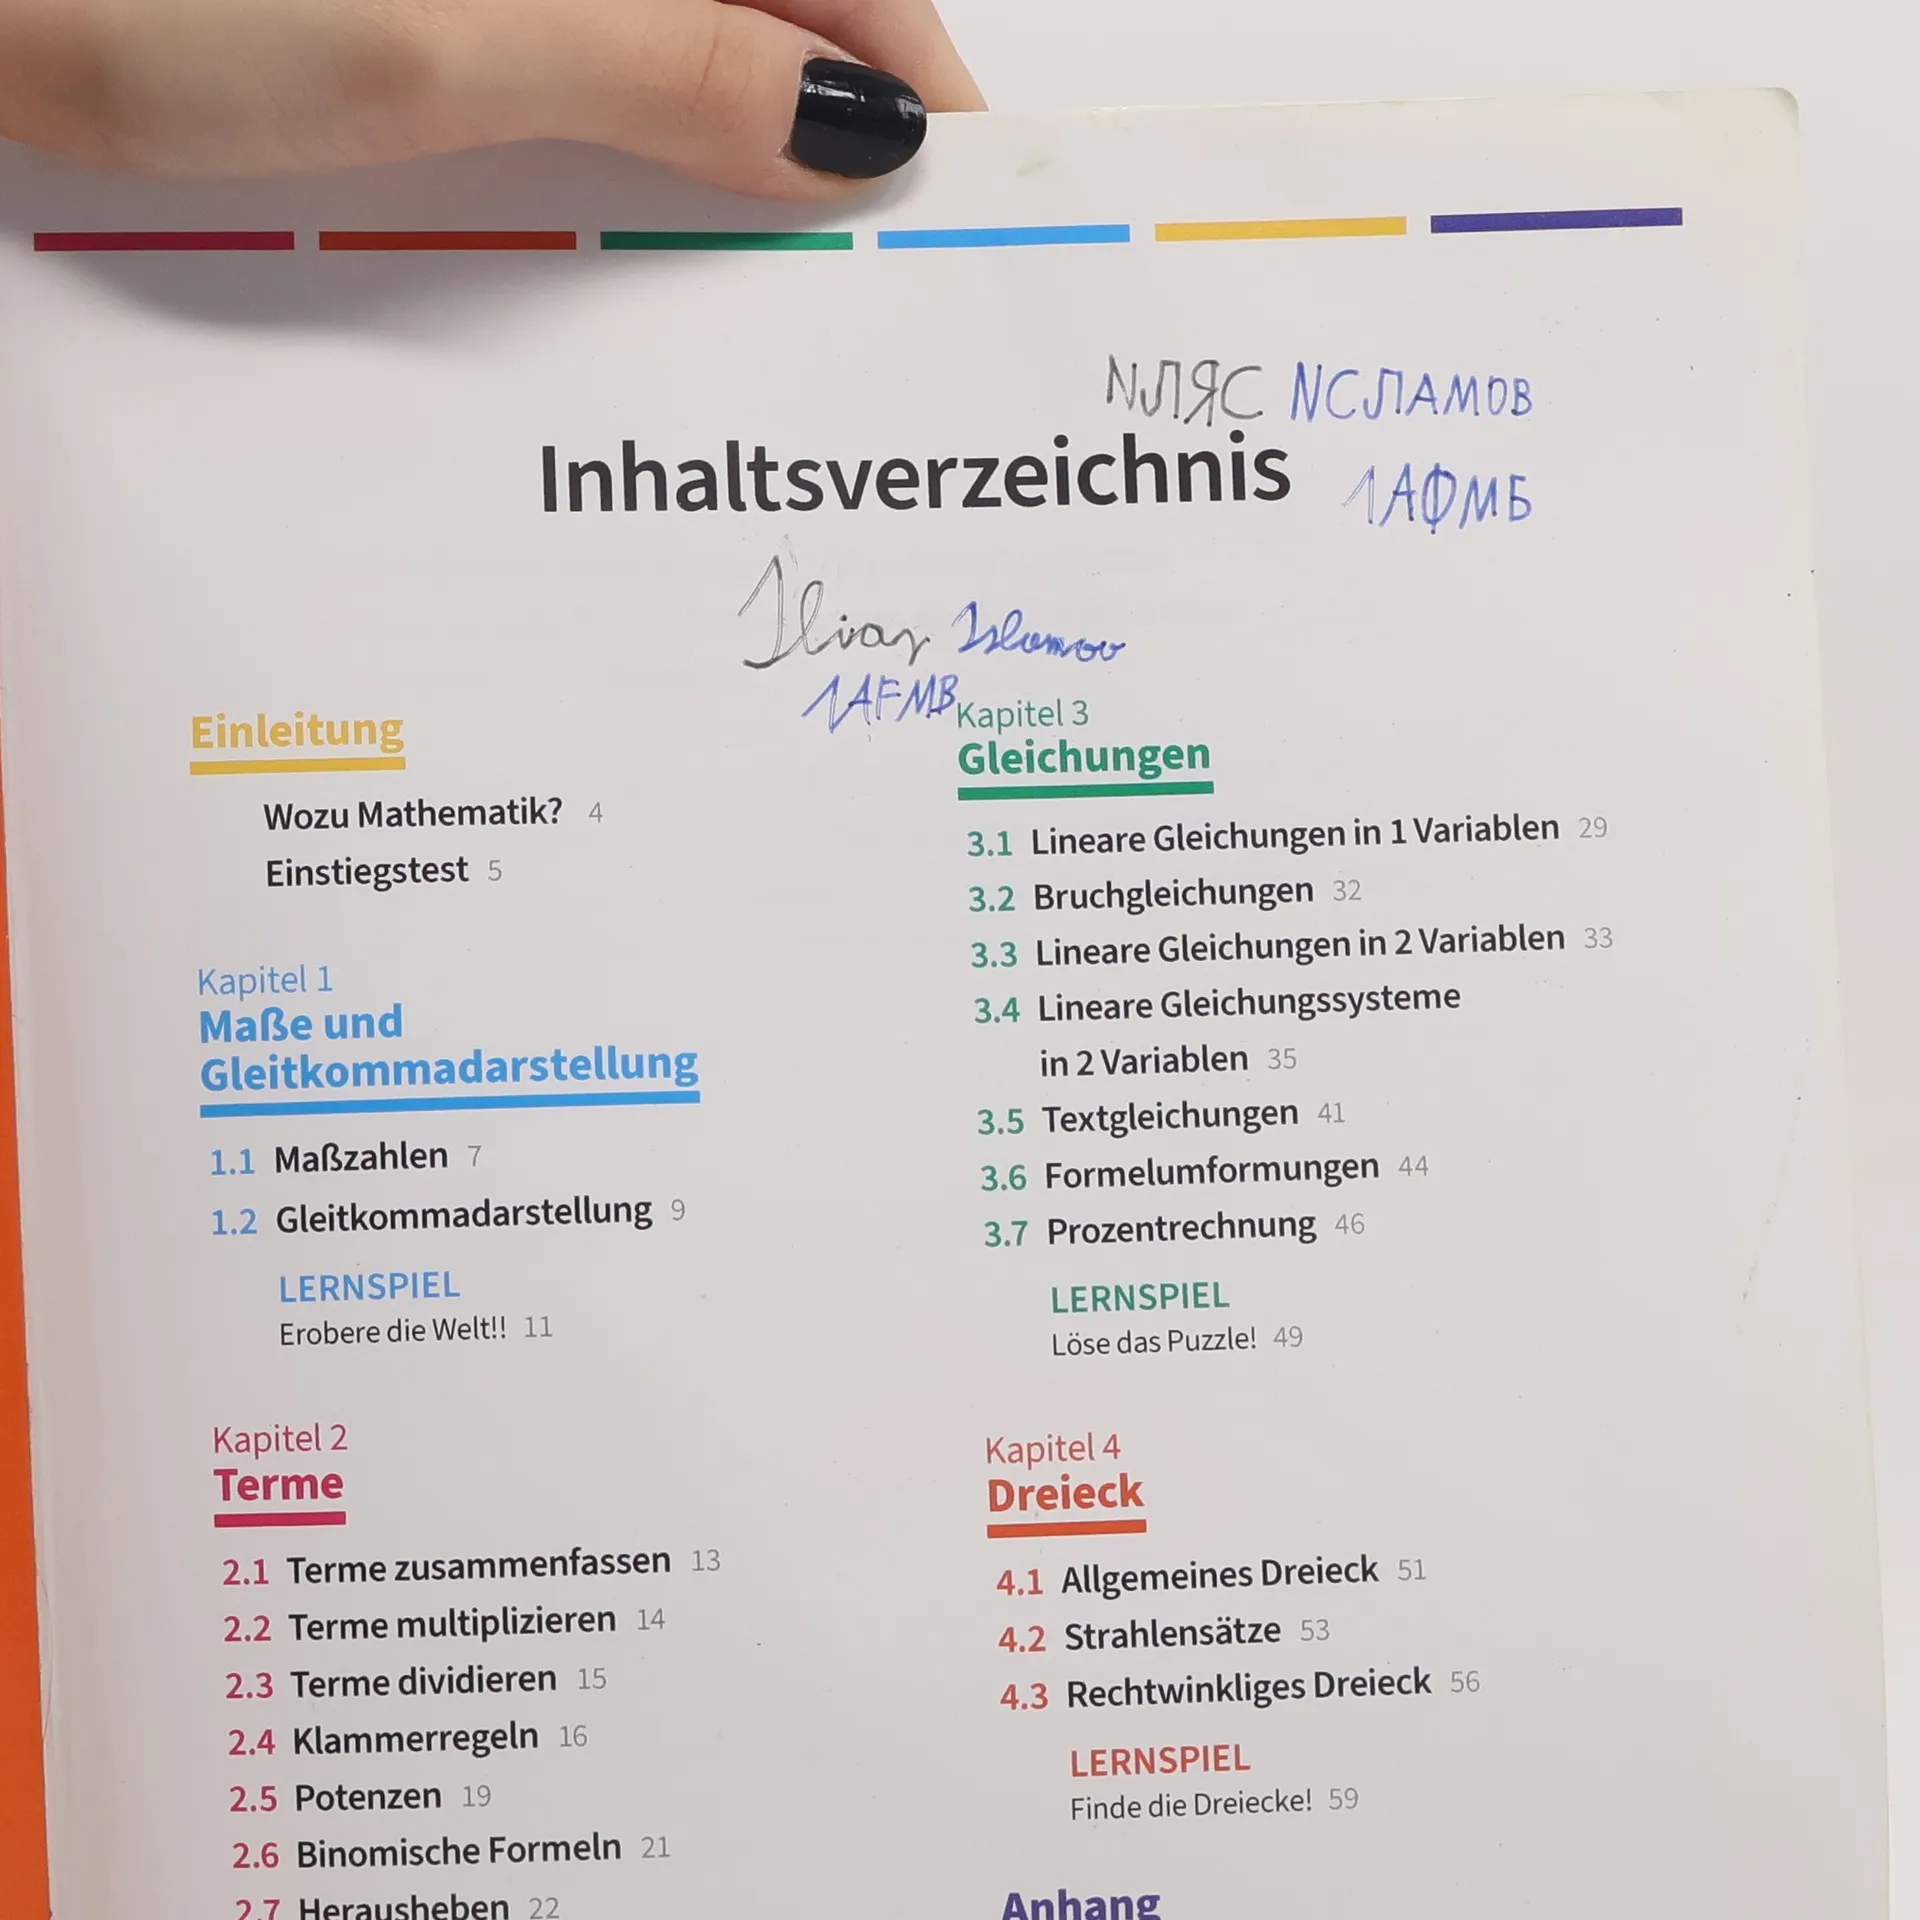 ИЛЯС ИСЛАМОВ
Inhaltsverzeichnis
1АФМБ
Iliay Islamov
1AFMB
Einleitung
Wozu Mathematik? 4
Einstiegstest 5
Kapitel 1
Maße und
Gleitkommadarstellung
1.1 Maßzahlen 7
1.2 Gleitkommadarstellung 9
LERNSPIEL
Erobere die Welt!! 11
Kapitel 2
Terme
2.1 Terme zusammenfassen 13
2.2 Terme multiplizieren 14
2.3 Terme dividieren 15
2.4 Klammerregeln 16
2.5 Potenzen 19
2.6 Binomische Formeln 21
2.7 Herausheben 22
Kapitel 3
Gleichungen
3.1 Lineare Gleichungen in 1 Variablen 29
3.2 Bruchgleichungen 32
3.3 Lineare Gleichungen in 2 Variablen 33
3.4 Lineare Gleichungssysteme
in 2 Variablen 35
3.5 Textgleichungen 41
3.6 Formelumformungen 44
3.7 Prozentrechnung 46
LERNSPIEL
Löse das Puzzle! 49
Kapitel 4
Dreieck
4.1 Allgemeines Dreieck 51
4.2 Strahlensätze 53
4.3 Rechtwinkliges Dreieck 56
LERNSPIEL
Finde die Dreiecke! 59
Anhang